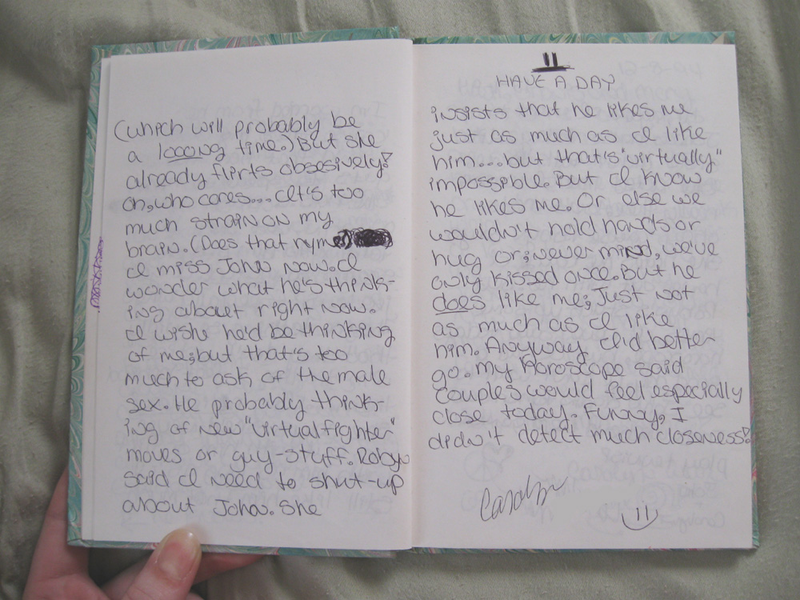 (which will probably be
a loooong time.) But she
already flirts obsesively!
oh, who cares... It's too
much strain on my
brain. (Does that ryme)
I miss John now. I
wonder what he's think-
ing about right now.
I wish he'd be thinking
of me, but that's too
much to ask of the male
sex. He probably think-
ing of new "virtual fighter"
moves or guy-stuff. Robyn
said I need to shut-up
about John. She
HAVE A DAY
insists that he likes me
just as much as I like
him... but that's "virtually"
impossible. But I know
he likes me. Or else we
wouldn't hold hands or
hug or, never mind, we've
only kissed once. But he
does like me; Just not
as much as I like
him. Anyway I'd better
go. my Horoscope said
couples would feel especially
close today. Funny, I
didn't detect much closeness!
Carolyn